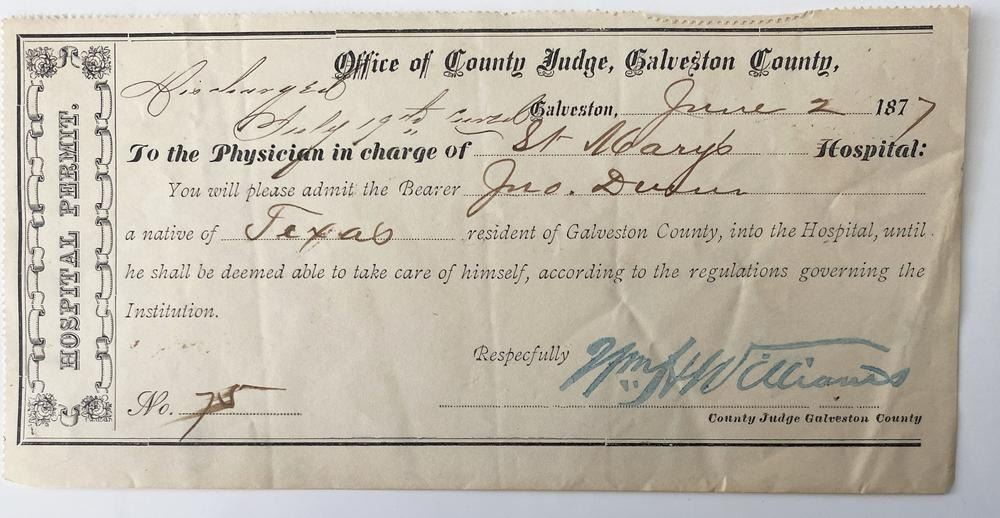 HOSPITAL PERMIT.
Office of County Judge, Galveston County,
Discharged
July 19th
Galveston, June 2 1877
To the Physician in charge of St Marys Hospital:
You will please admit the Bearer Jno.
a native of Texas resident of Galveston County, into the Hospital, until
he shall be deemed able to take care of himself, according to the regulations governing the
Institution.
Respecfully Wm H Williams
No. 75
County Judge Galveston County